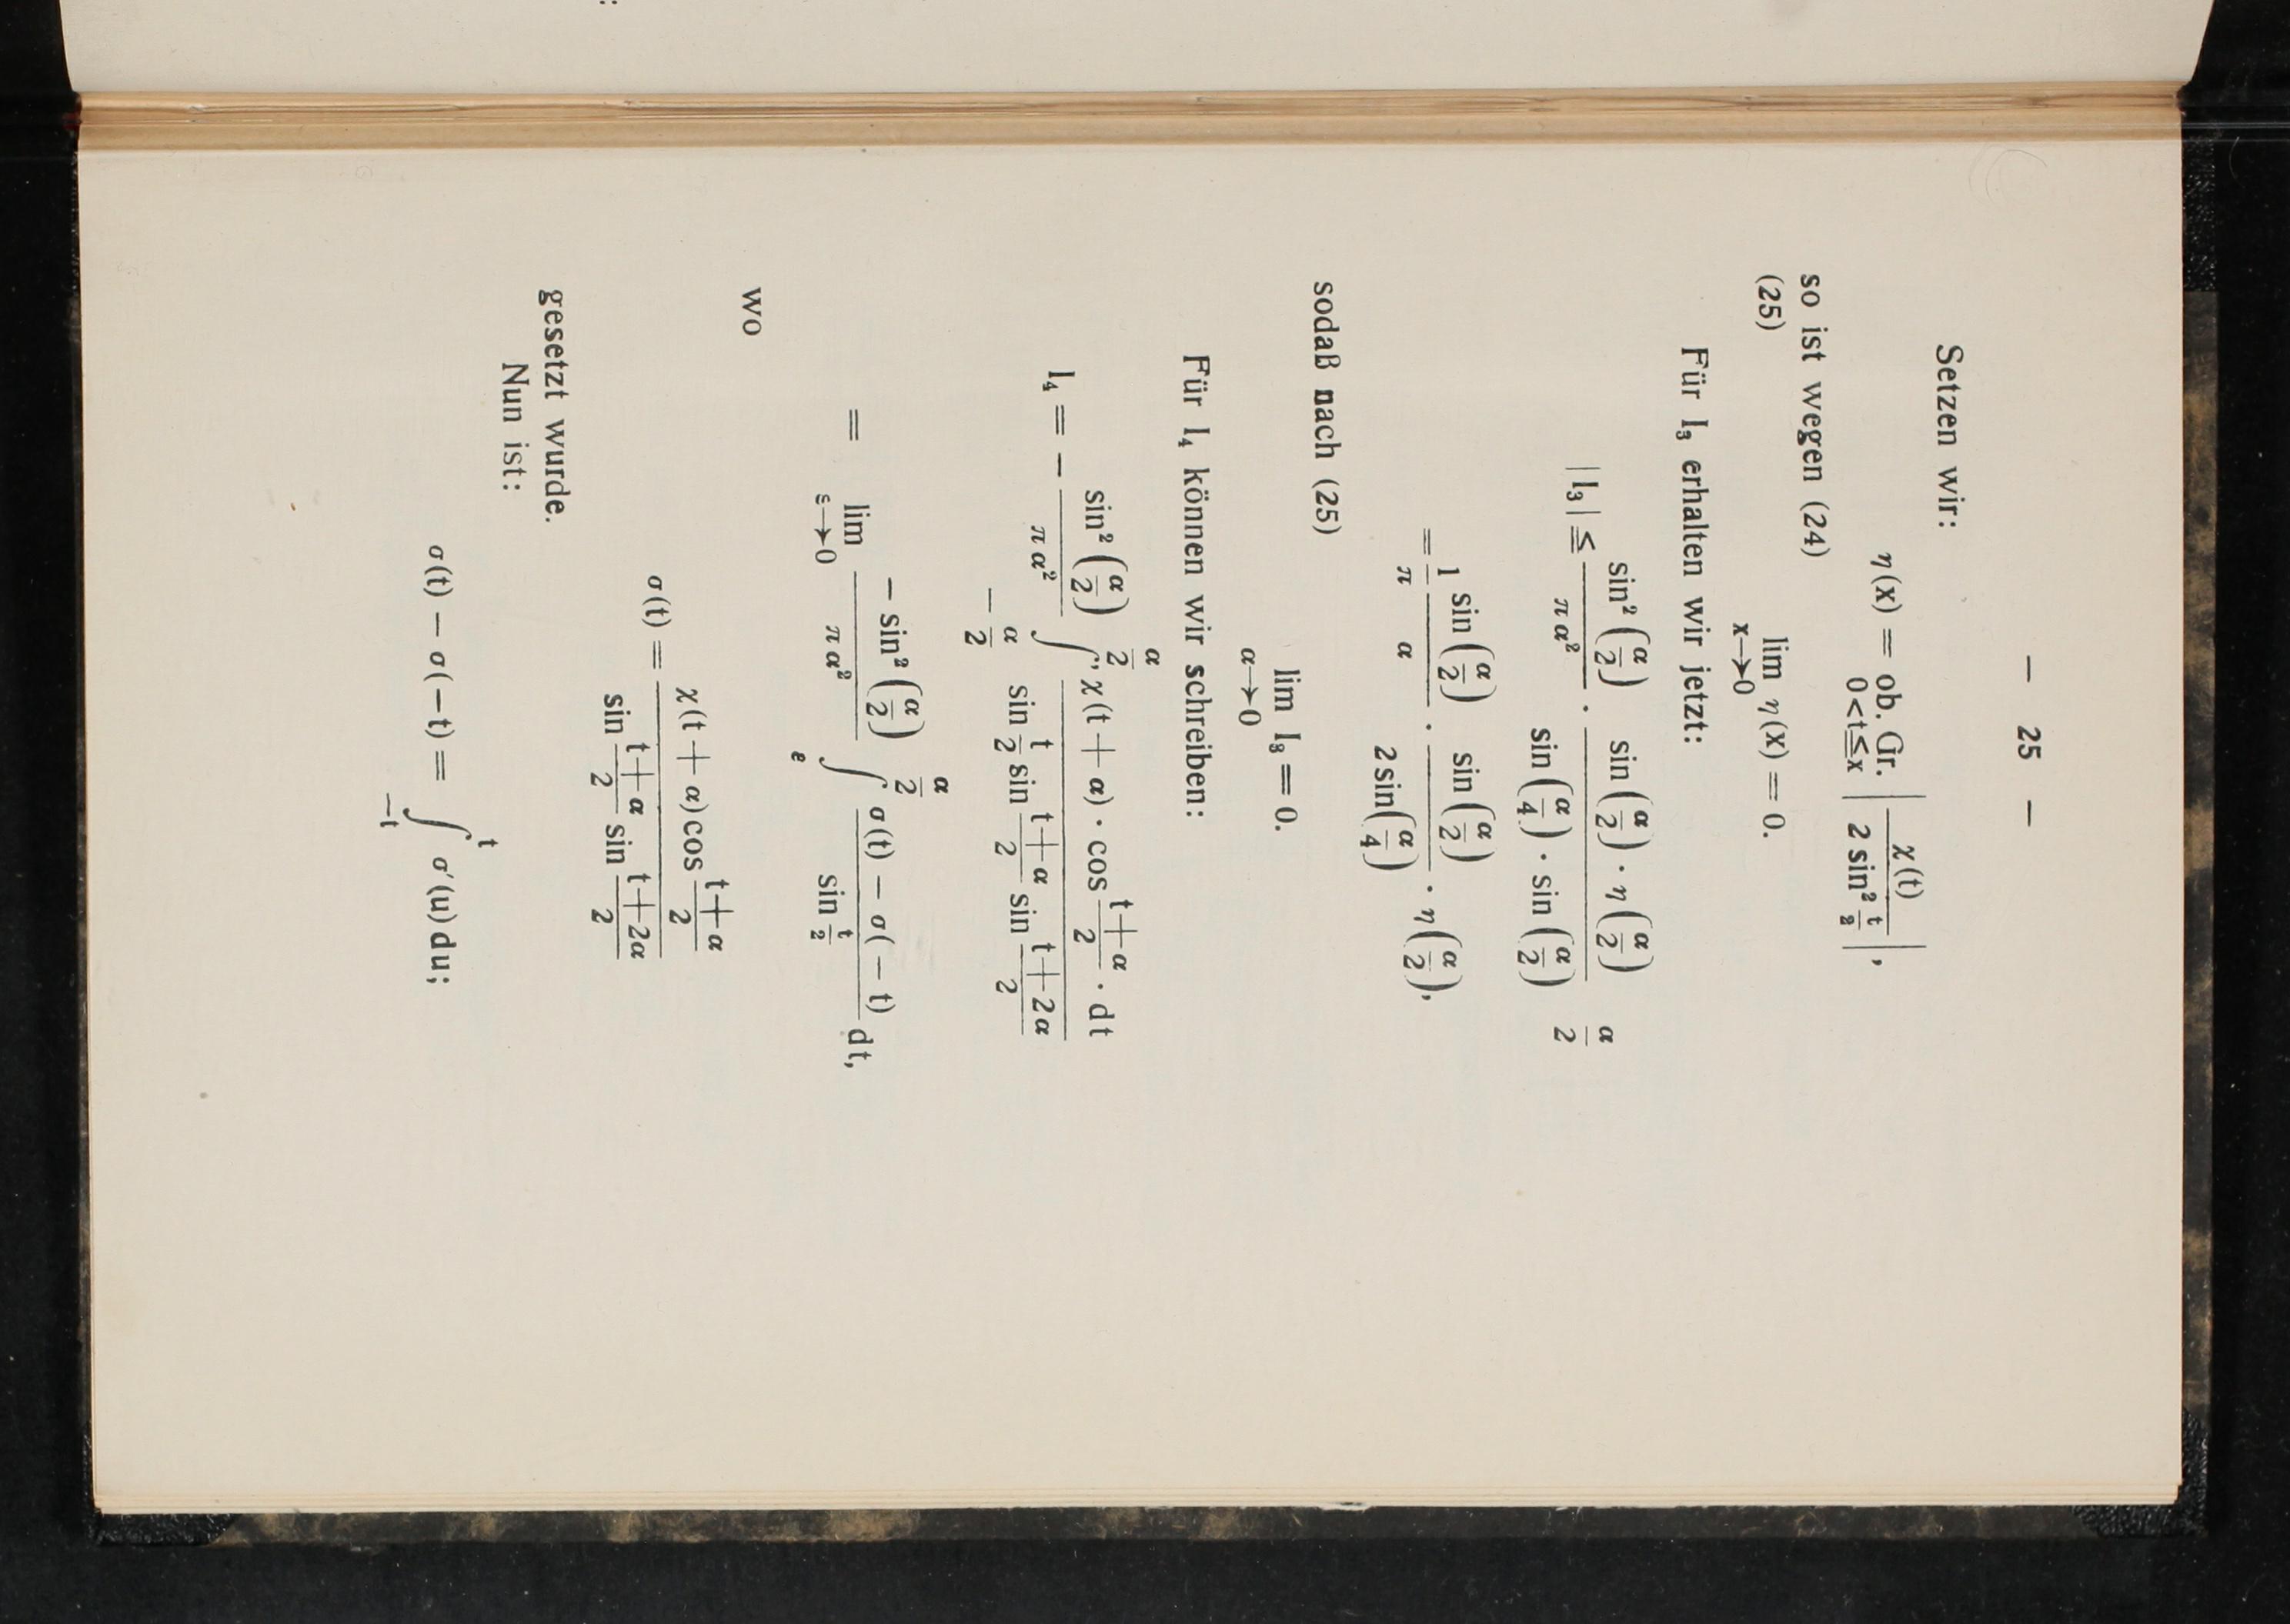 — 25 —
Setzen wir:
η(x) = ob. Gr. | χ(t) / 2 sin² t/2 |,
0<t≦x
so ist wegen (24)
(25) lim η(x) = 0.
x→0
Für I₃ erhalten wir jetzt:
| I₃ | ≦ sin² (α/2) / π α² · sin (α/2) · η (α/2) / sin (α/4) · sin (α/2) α/2
= 1/π sin (α/2) / α · sin (α/2) / 2 sin (α/4) · η (α/2),
sodaß nach (25)
lim I₃ = 0.
α→0
Für I₄ können wir schreiben:
I₄ = − sin² (α/2) / π α² ∫_{−α/2}^{α/2} ’ χ(t + α) · cos (t + α)/2 · dt / sin t/2 sin (t + α)/2 sin (t + 2α)/2
= lim_{ε→0} − sin² (α/2) / π α² ∫_e^{α/2} σ(t) − σ(− t) / sin t/2 dt,
wo
σ(t) = χ(t + α) cos (t + α)/2 / sin (t + α)/2 sin (t + 2α)/2
gesetzt wurde.
Nun ist:
σ(t) − σ(−t) = ∫_{−t}^{t} σ′(u) du;